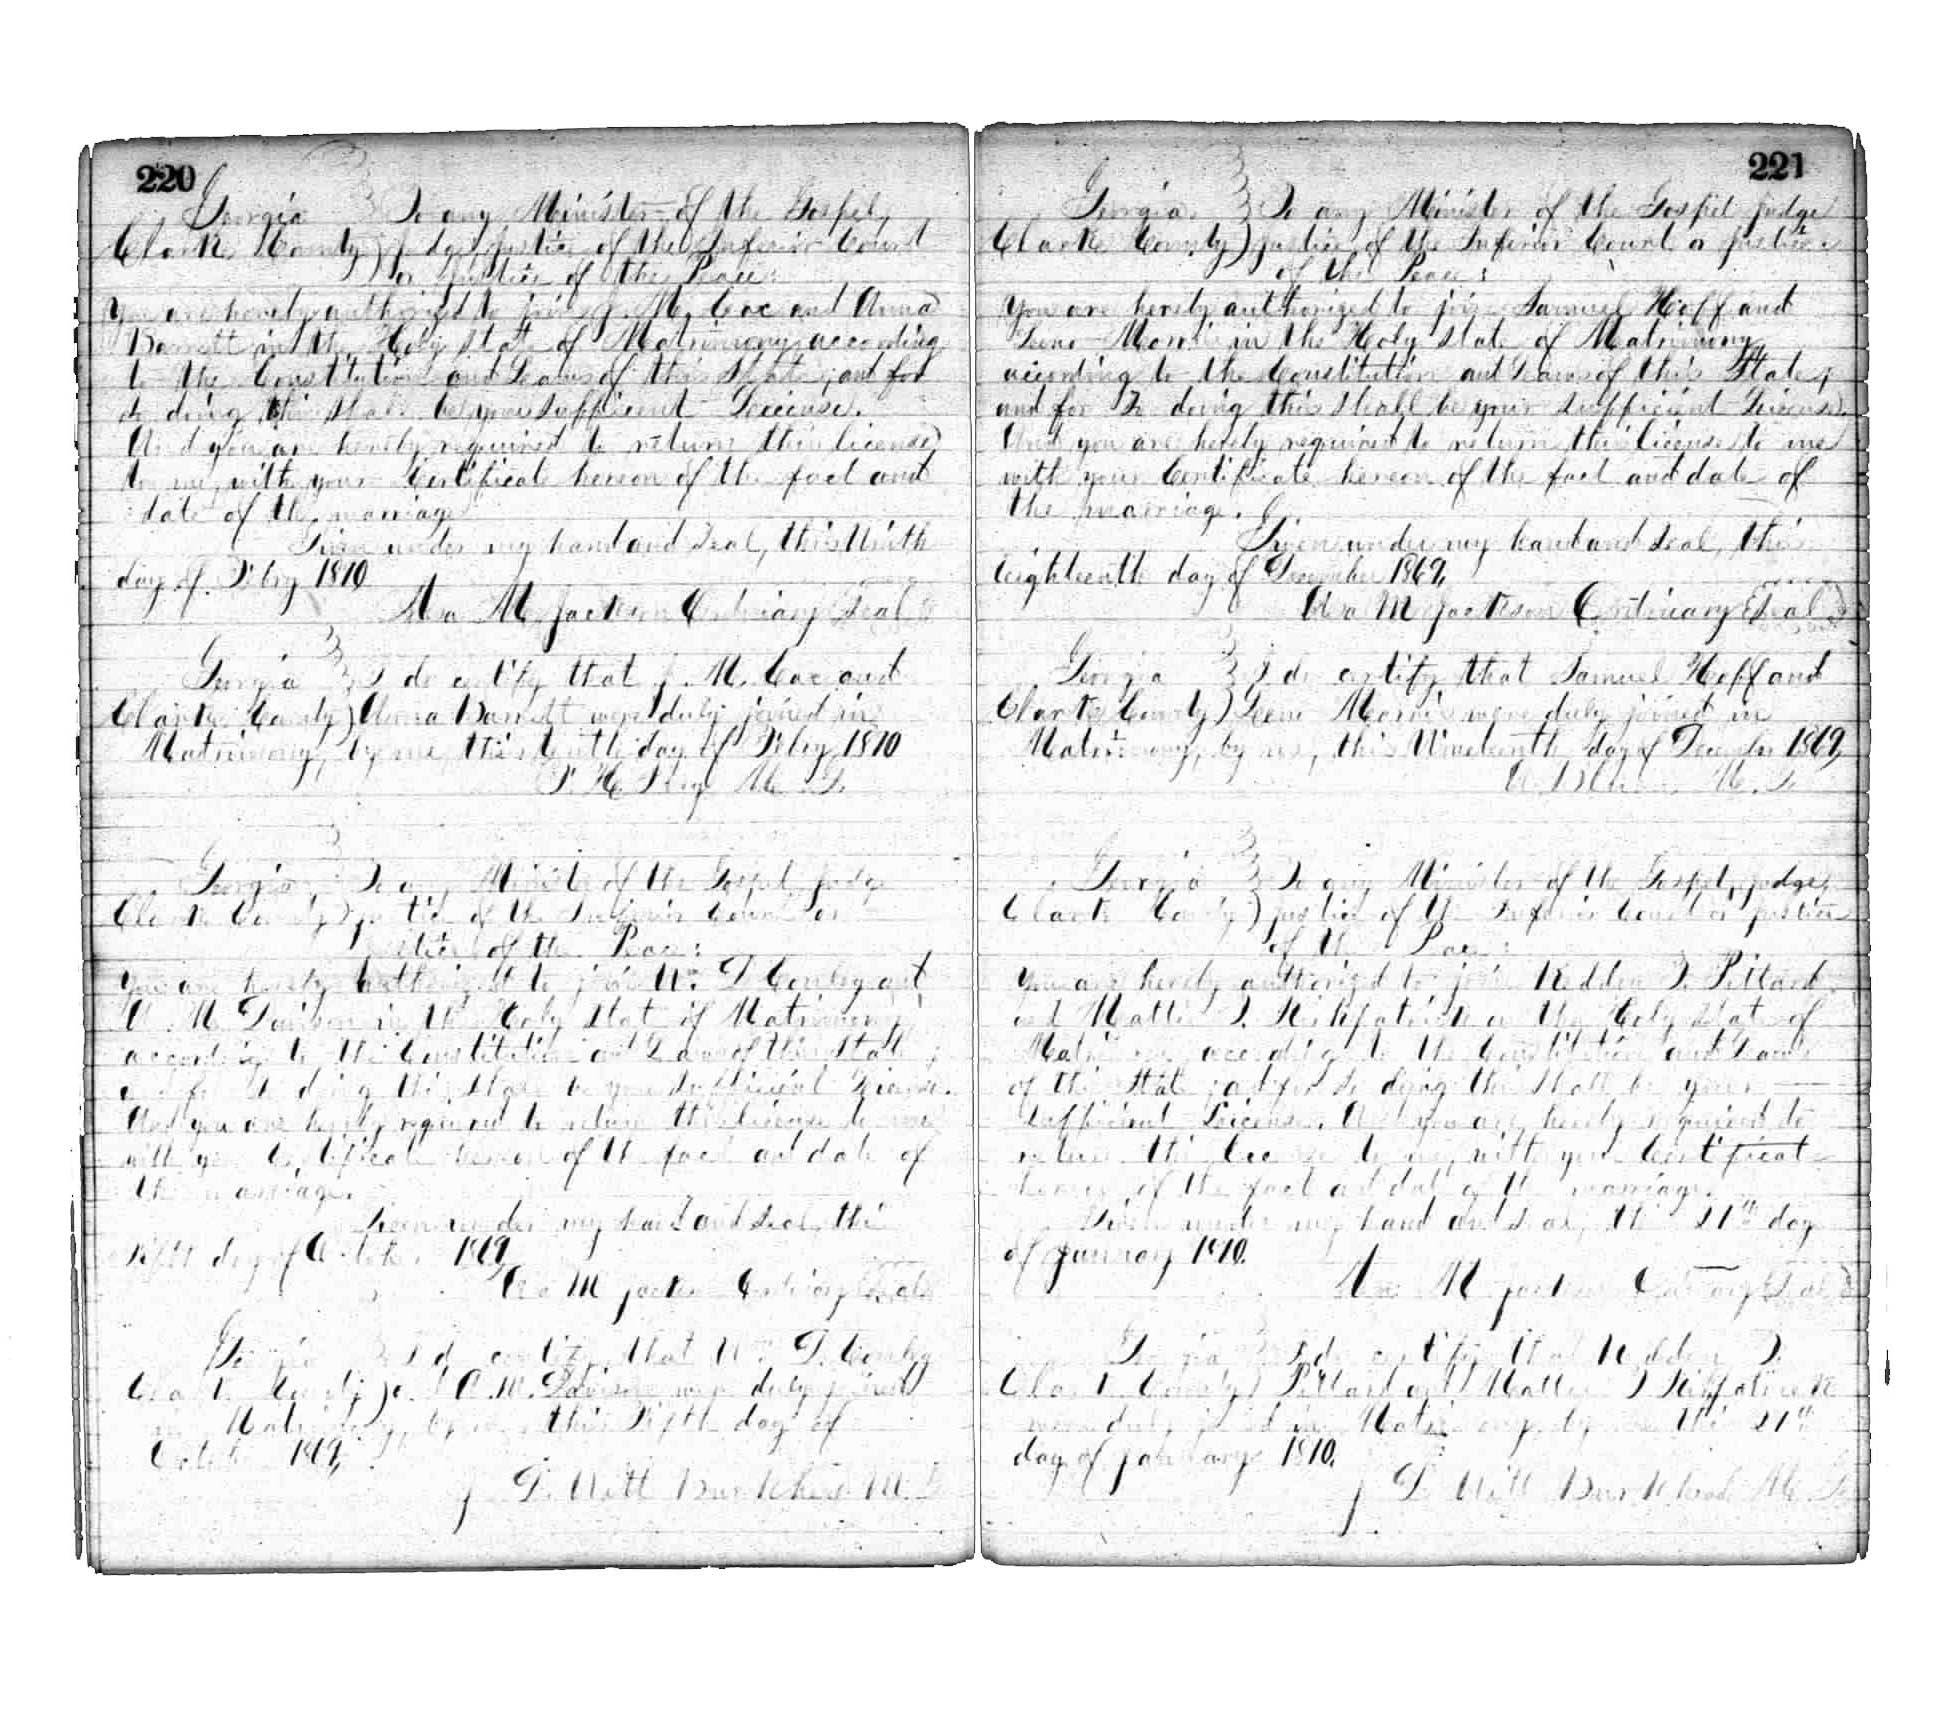 220
Georgia To any Minister of the Gospel,
Clarke County) Judge, Justice of the Inferior Court
or Justice of the Peace:
You are hereby authorized to join J. M. Coe and Anna
Barrett in the Holy State of Matrimony according
to the Constitution and Laws of this State; and for
so doing this shall be your sufficient License.
And you are hereby required to return this license
to me, with your Certificate hereon of the fact and
date of the marriage
Given under my hand and Seal, this Ninth
day of Feby 1870
Asa M. Jackson Ordinary Seal
Georgia I do certify that J. M. Coe and
Clarke County) Anna Barrett were duly joined in
Matrimony, by me this tenth day of Feby 1870
M. G.
Georgia To any Minister of the Gospel, Judge
Clarke County) Justice of the Inferior Court or
Justice of the Peace:
You are hereby authorized to join Wm. D. Conley and
A. M. Davison in the Holy State of Matrimony
according to the Constitution and Laws of this State;
and for So doing this Shall be your Sufficient License.
And you are hereby required to return this license to me
with your Certificate hereon of the fact and date of
the marriage.
Given under my hand and Seal, this
Fifth day of October 1869,
Asa M Jackson Ordinary Seal
Georgia I do certify that Wm. D. Conley
Clarke County) and A. M. Davison were duly joined
in Matrimony, by me, this Fifth day of
October 1869,
J. D. Witt Burkhead M. G
221
Georgia, To any Minister of the Gospel Judge
Clarke County) Justice of the Inferior Court or Justice
of the Peace:
You are hereby authorized to join Samuel Hoff and
Morris in the Holy State of Matrimony
according to the Constitution and Laws of this State;
and for So doing this Shall be your Sufficient License.
And you are hereby required to return this license to me
with your Certificate hereon of the fact and date of
the marriage.
Given under my hand and Seal, this
Eighteenth day of December 1869,
Asa M Jackson Ordinary (Seal)
Georgia I do certify that Samuel Hoff and
Clarke County) Morris were duly joined in
Matrimony, by me, this Nineteenth day of December 1869,
M. G.
Georgia To any Minister of the Gospel, Judge,
Clarke County) Justice of the Inferior Court or Justice
of the Peace:
You are hereby authorized to join Redden T. Pittard
and Mattie T. Kirkpatrick in the Holy State of
Matrimony according to the Constitution and Laws
of this State; and for So doing this Shall be your
Sufficient License. And you are hereby required to
return this license to me, with your Certificate
hereon of the fact and date of the marriage.
Given under my hand and Seal, this 21th day
of January 1870.
Asa M Jackson Ordinary (Seal)
Georgia I do certify that Redden T.
Clarke County) Pittard and Mattie T Kirkpatrick
were duly joined in Matrimony, by me this 21th
day of January 1870.
J. D. Witt Burkhead M. G.